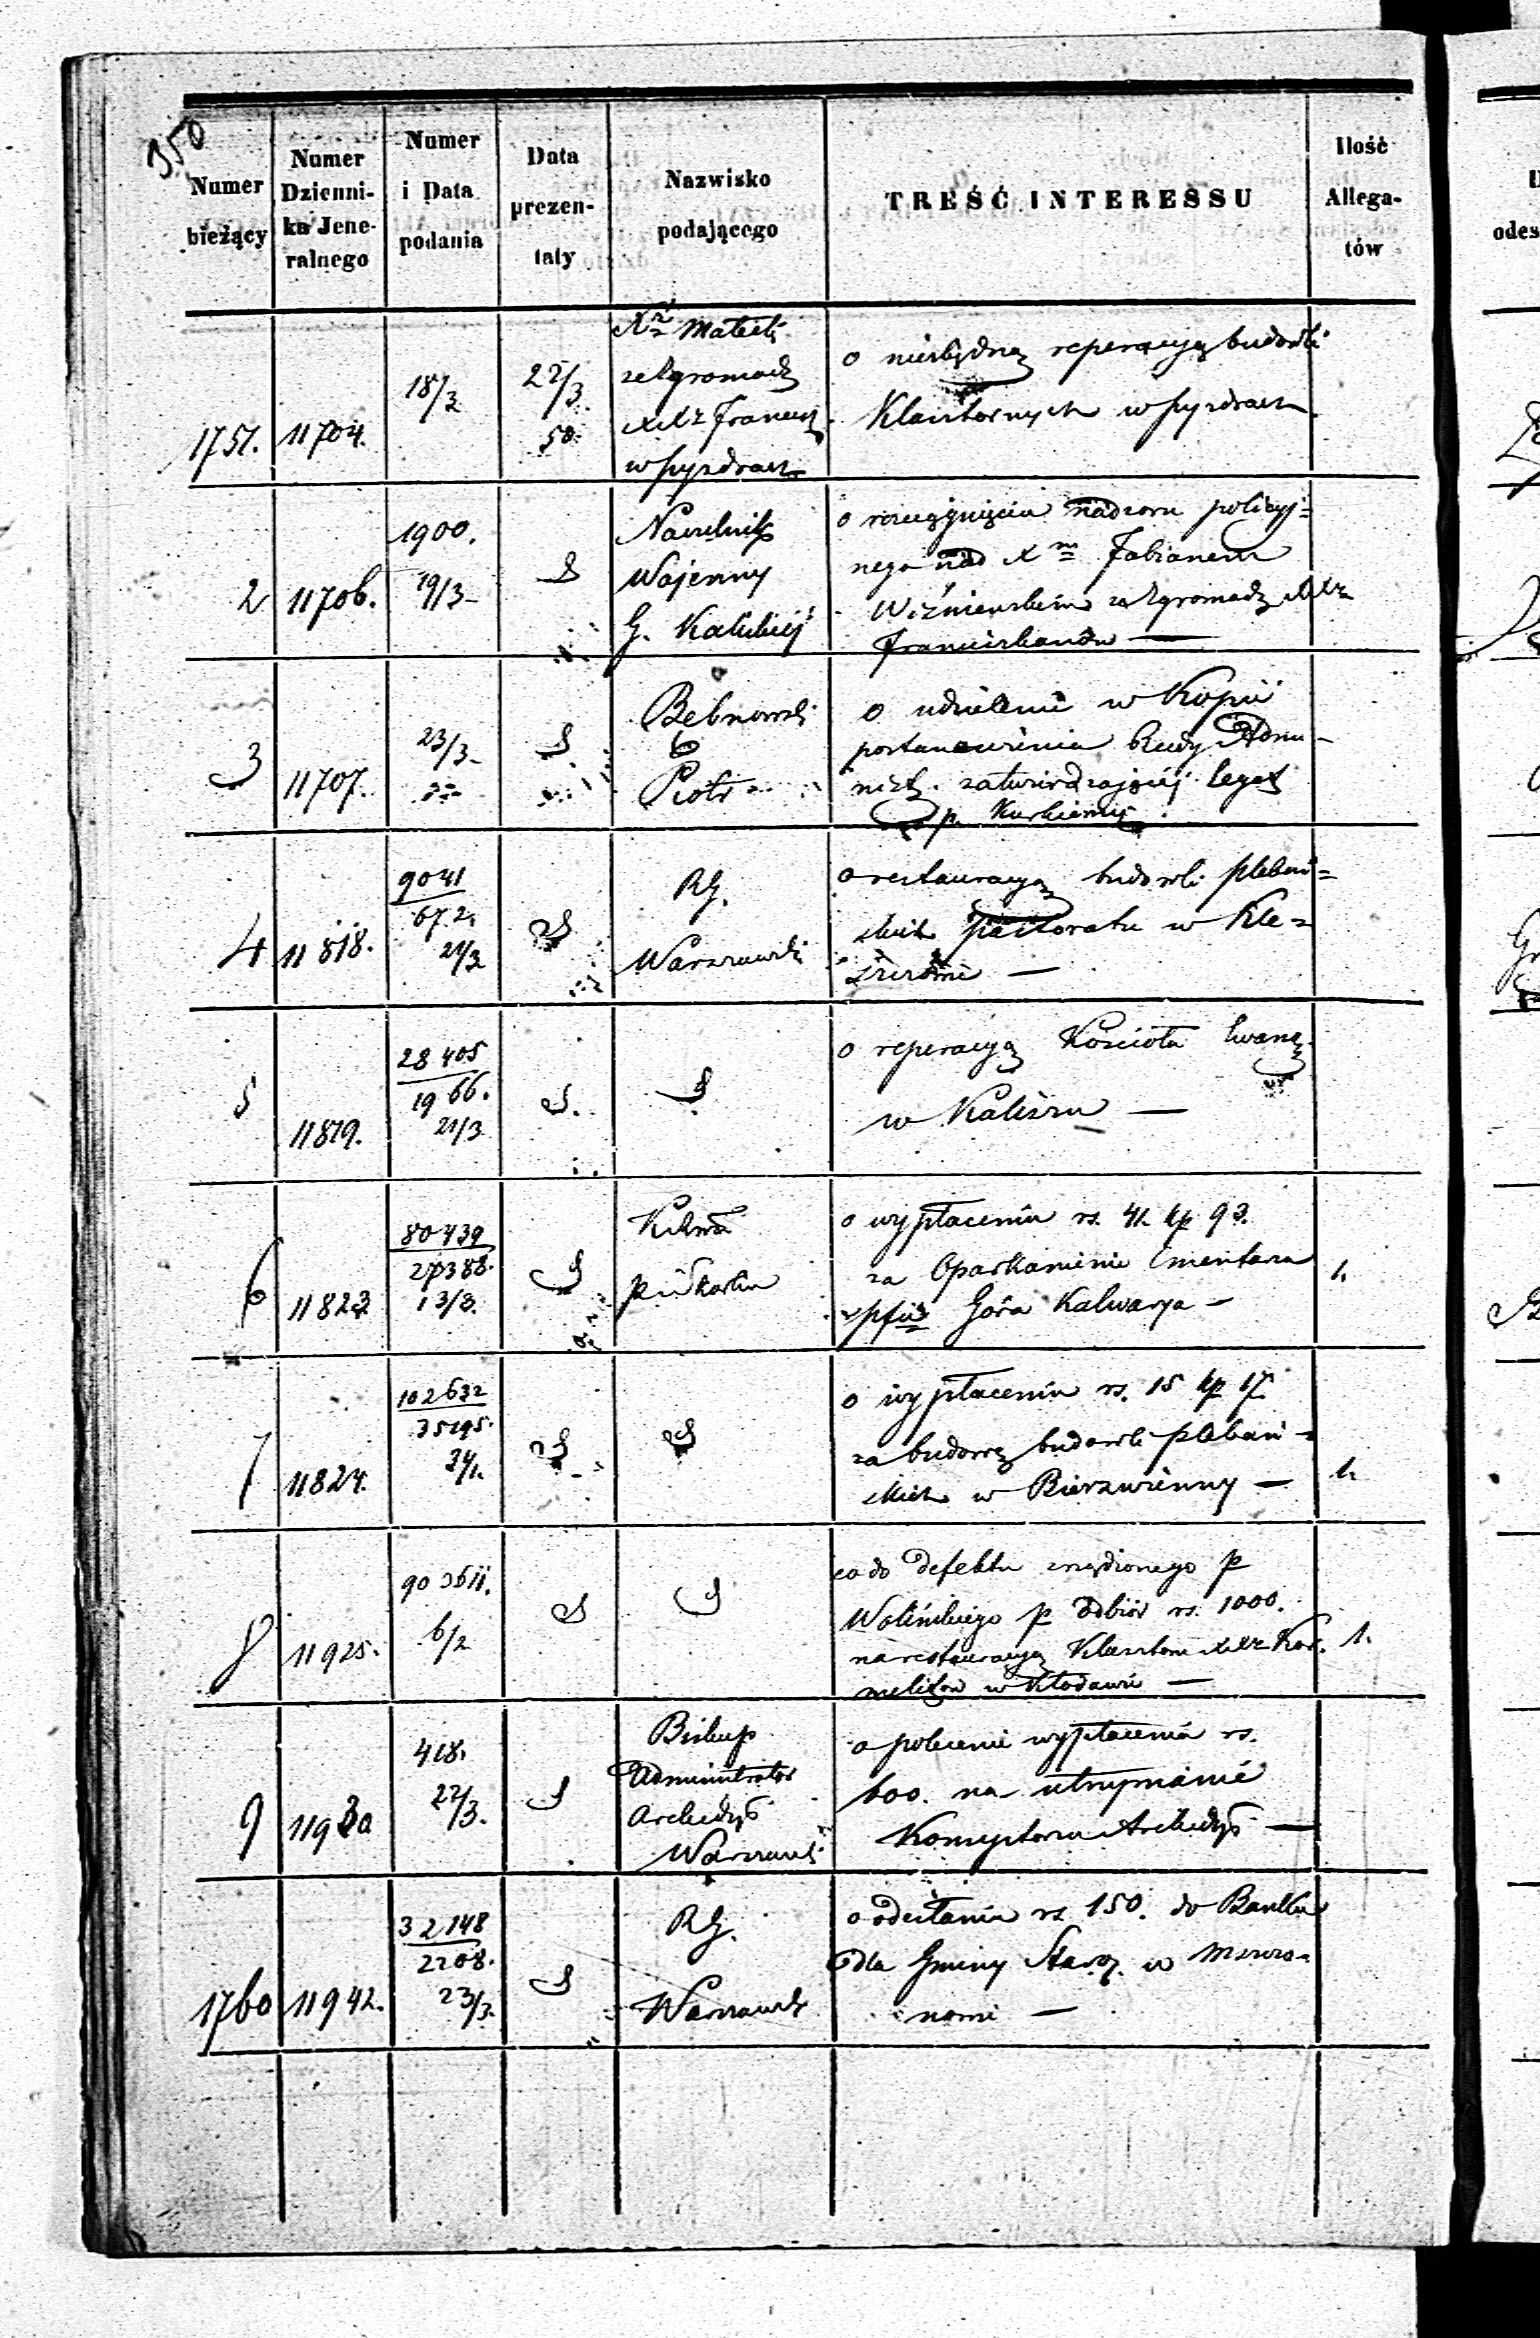 350
Numer bieżący
Numer Dzienni- ka Jene- ralnego
Numer i Data podania
Data prezen- taty
Nazwisko podającego
TREŚĆ INTERESSU
Ilość Allega- tów
1751. 11704. 18/3 22/3 50.
Xdz Mateli
ze Zgromadz
XXdz Francisz
w Pyzdrach
o niezbędną reperacyą budowli
Klasztornych w Pyzdrach
2 11706. 1900. 19/3
Naczelnik
Wojenny
G. Kaliskiej
o rozciągnięciu nadzoru policyj=
nego nad Xm Fabianem
Wiźniewskim ze Zgromadz XXdz
Franciszkanów —
3 11707. 23/3
Bebnowski
Piotr
o udzielenie w Kopii
postanowienia Rady Admi-
nist. zatwierdzającej legat
p. Kurkiemę.
4 11818. 9041
672. 21/3
RG.
Warszawski
o restauracyą budowli pleban=
skich pastoratu w Kle=
5 11819. 28405
1966.
21/3
o reperacyą Kościoła Ewang.
w Kaliszu —
6 11823 80439
27388.
13/3.
o wypłaceniu rs. 41 kp 93.
za Oparkanienie Cmentarza
Góra Kalwarya —
1.
7 11824. 102632
35295.
o wypłaceniu rs. 15 kp 17.
za budowę budowli pleban=
skich w Bierzwienny —
1.
8 11925. 903611.
6/2
co do defektu znajdionego p
Wolińskiego p odbiór rs. 1000.
na restauracyą Klasztoru XXdz Kar.
melitów w Kłodawie —
1.
9 11930 418.
22/3.
Biskup
Administrator
Archidyec
Warszawski
o polecenie wypłacenia rs.
600. na utrzymanie
Konsystorza Archidyec —
1760 11942. 32148
2208.
23/3.
RG.
Warszawski
o odesłaniu rs 150. do Banku
dla Gminy Staroz. w Mszczo=
nowie —